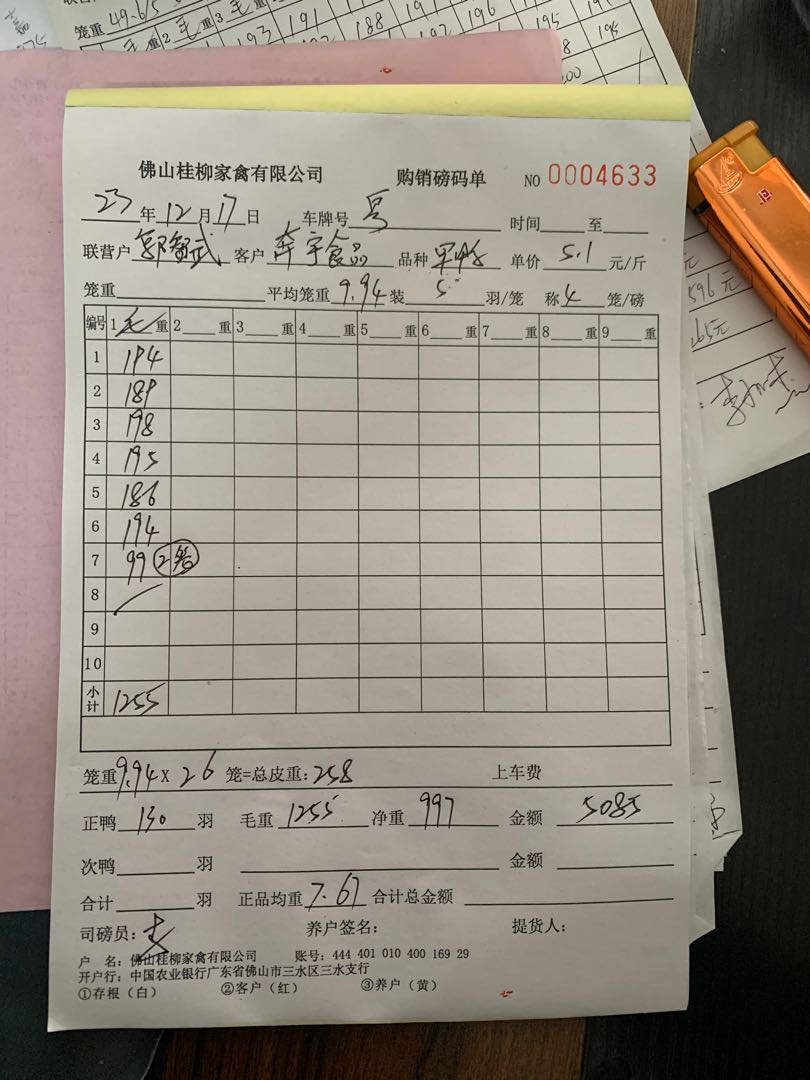 笼重49.6/5
193 191 188 197 196 195 195
佛山桂柳家禽有限公司 购销磅码单 NO 0004633
23年12月17日 车牌号 时间 至
联营户 郭智武 客户 奔宇食品 品种 单价 5.1 元/斤
笼重 平均笼重9.94装 5 羽/笼 称4 笼/磅
编号 1毛重 2 重 3 重 4 重 5 重 6 重 7 重 8 重 9 重
1 194
2 189
3 198
4 195
5 186
6 194
7 99
8
9
10
小计 1255
笼重9.94X26 笼=总皮重:258 上车费
正鸭 130 羽 毛重 1255 净重 997 金额 5085
次鸭 羽 金额
合计 羽 正品均重 7.67 合计总金额
司磅员: 养户签名: 提货人:
户 名:佛山桂柳家禽有限公司 账号:444 401 010 400 169 29
开户行:中国农业银行广东省佛山市三水区三水支行
①存根(白) ②客户(红) ③养户(黄)
元
596元
265元